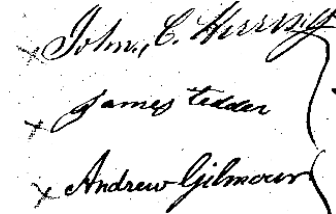 x John, C. Herring
x James Tedder
x Andrew Gilmour